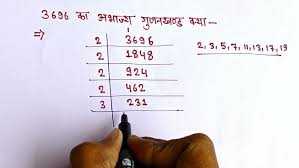 3696 का अभाज्य गुणनखण्ड क्या -
⇒ 2 | 3696
2 | 1848
2 | 924
2 | 462
3 | 231
2, 3, 5, 7, 11, 13, 17, 19